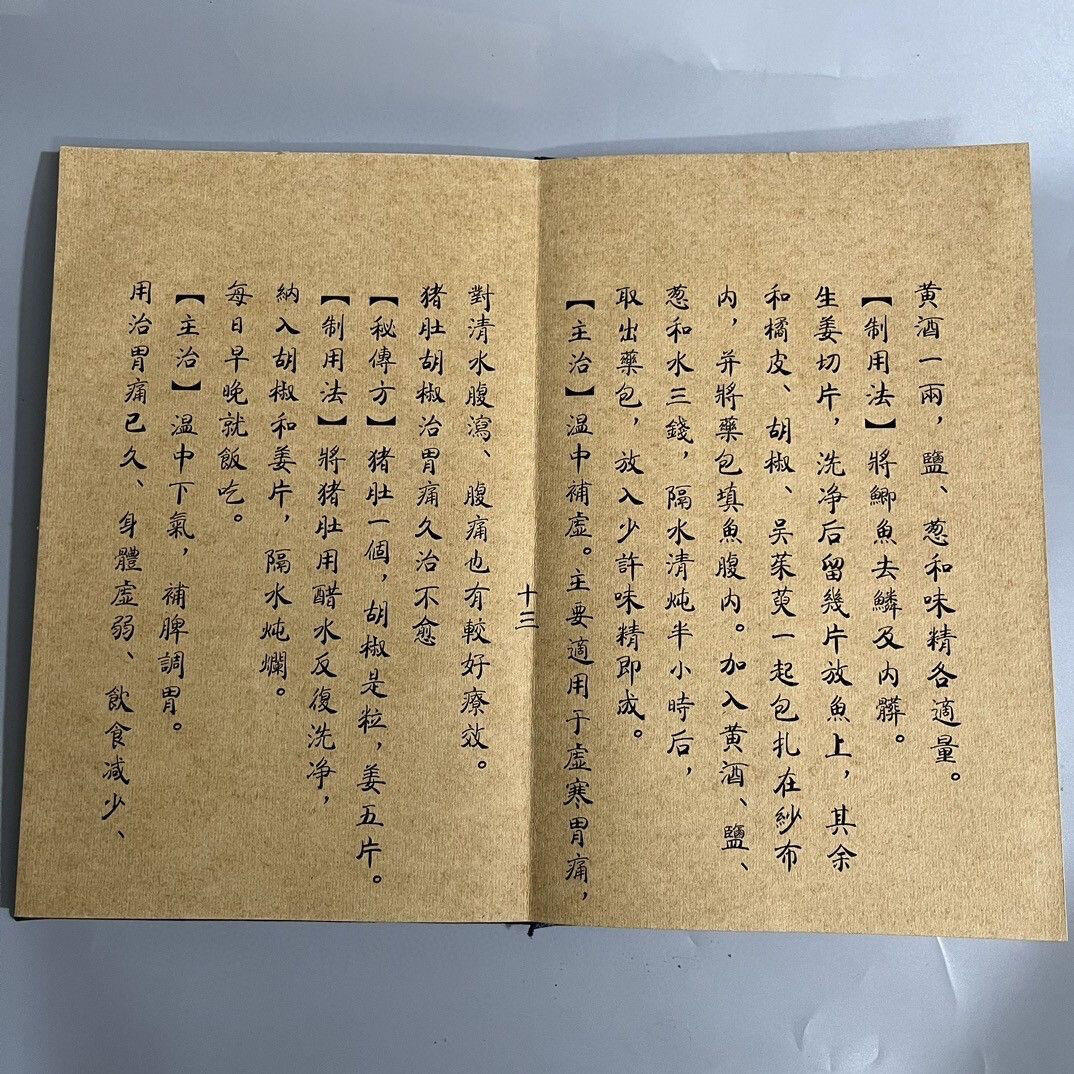 黄酒一兩，鹽、葱和味精各適量。
【制用法】將鯽魚去鱗及内髒。
生姜切片，洗净后留幾片放魚上，其余
和橘皮、胡椒、吴茱萸一起包扎在紗布
内，并將藥包填魚腹内。加入黄酒、鹽、
葱和水三錢，隔水清炖半小時后，
取出藥包，放入少許味精即成。
【主治】温中補虚。主要適用于虚寒胃痛，
十三
對清水腹瀉、腹痛也有較好療效。
猪肚胡椒治胃痛久治不愈
【秘傳方】猪肚一個，胡椒是粒，姜五片。
【制用法】將猪肚用醋水反復洗净，
納入胡椒和姜片，隔水炖爛。
每日早晚就飯吃。
【主治】温中下氣，補脾調胃。
用治胃痛已久、身體虚弱、飲食减少、